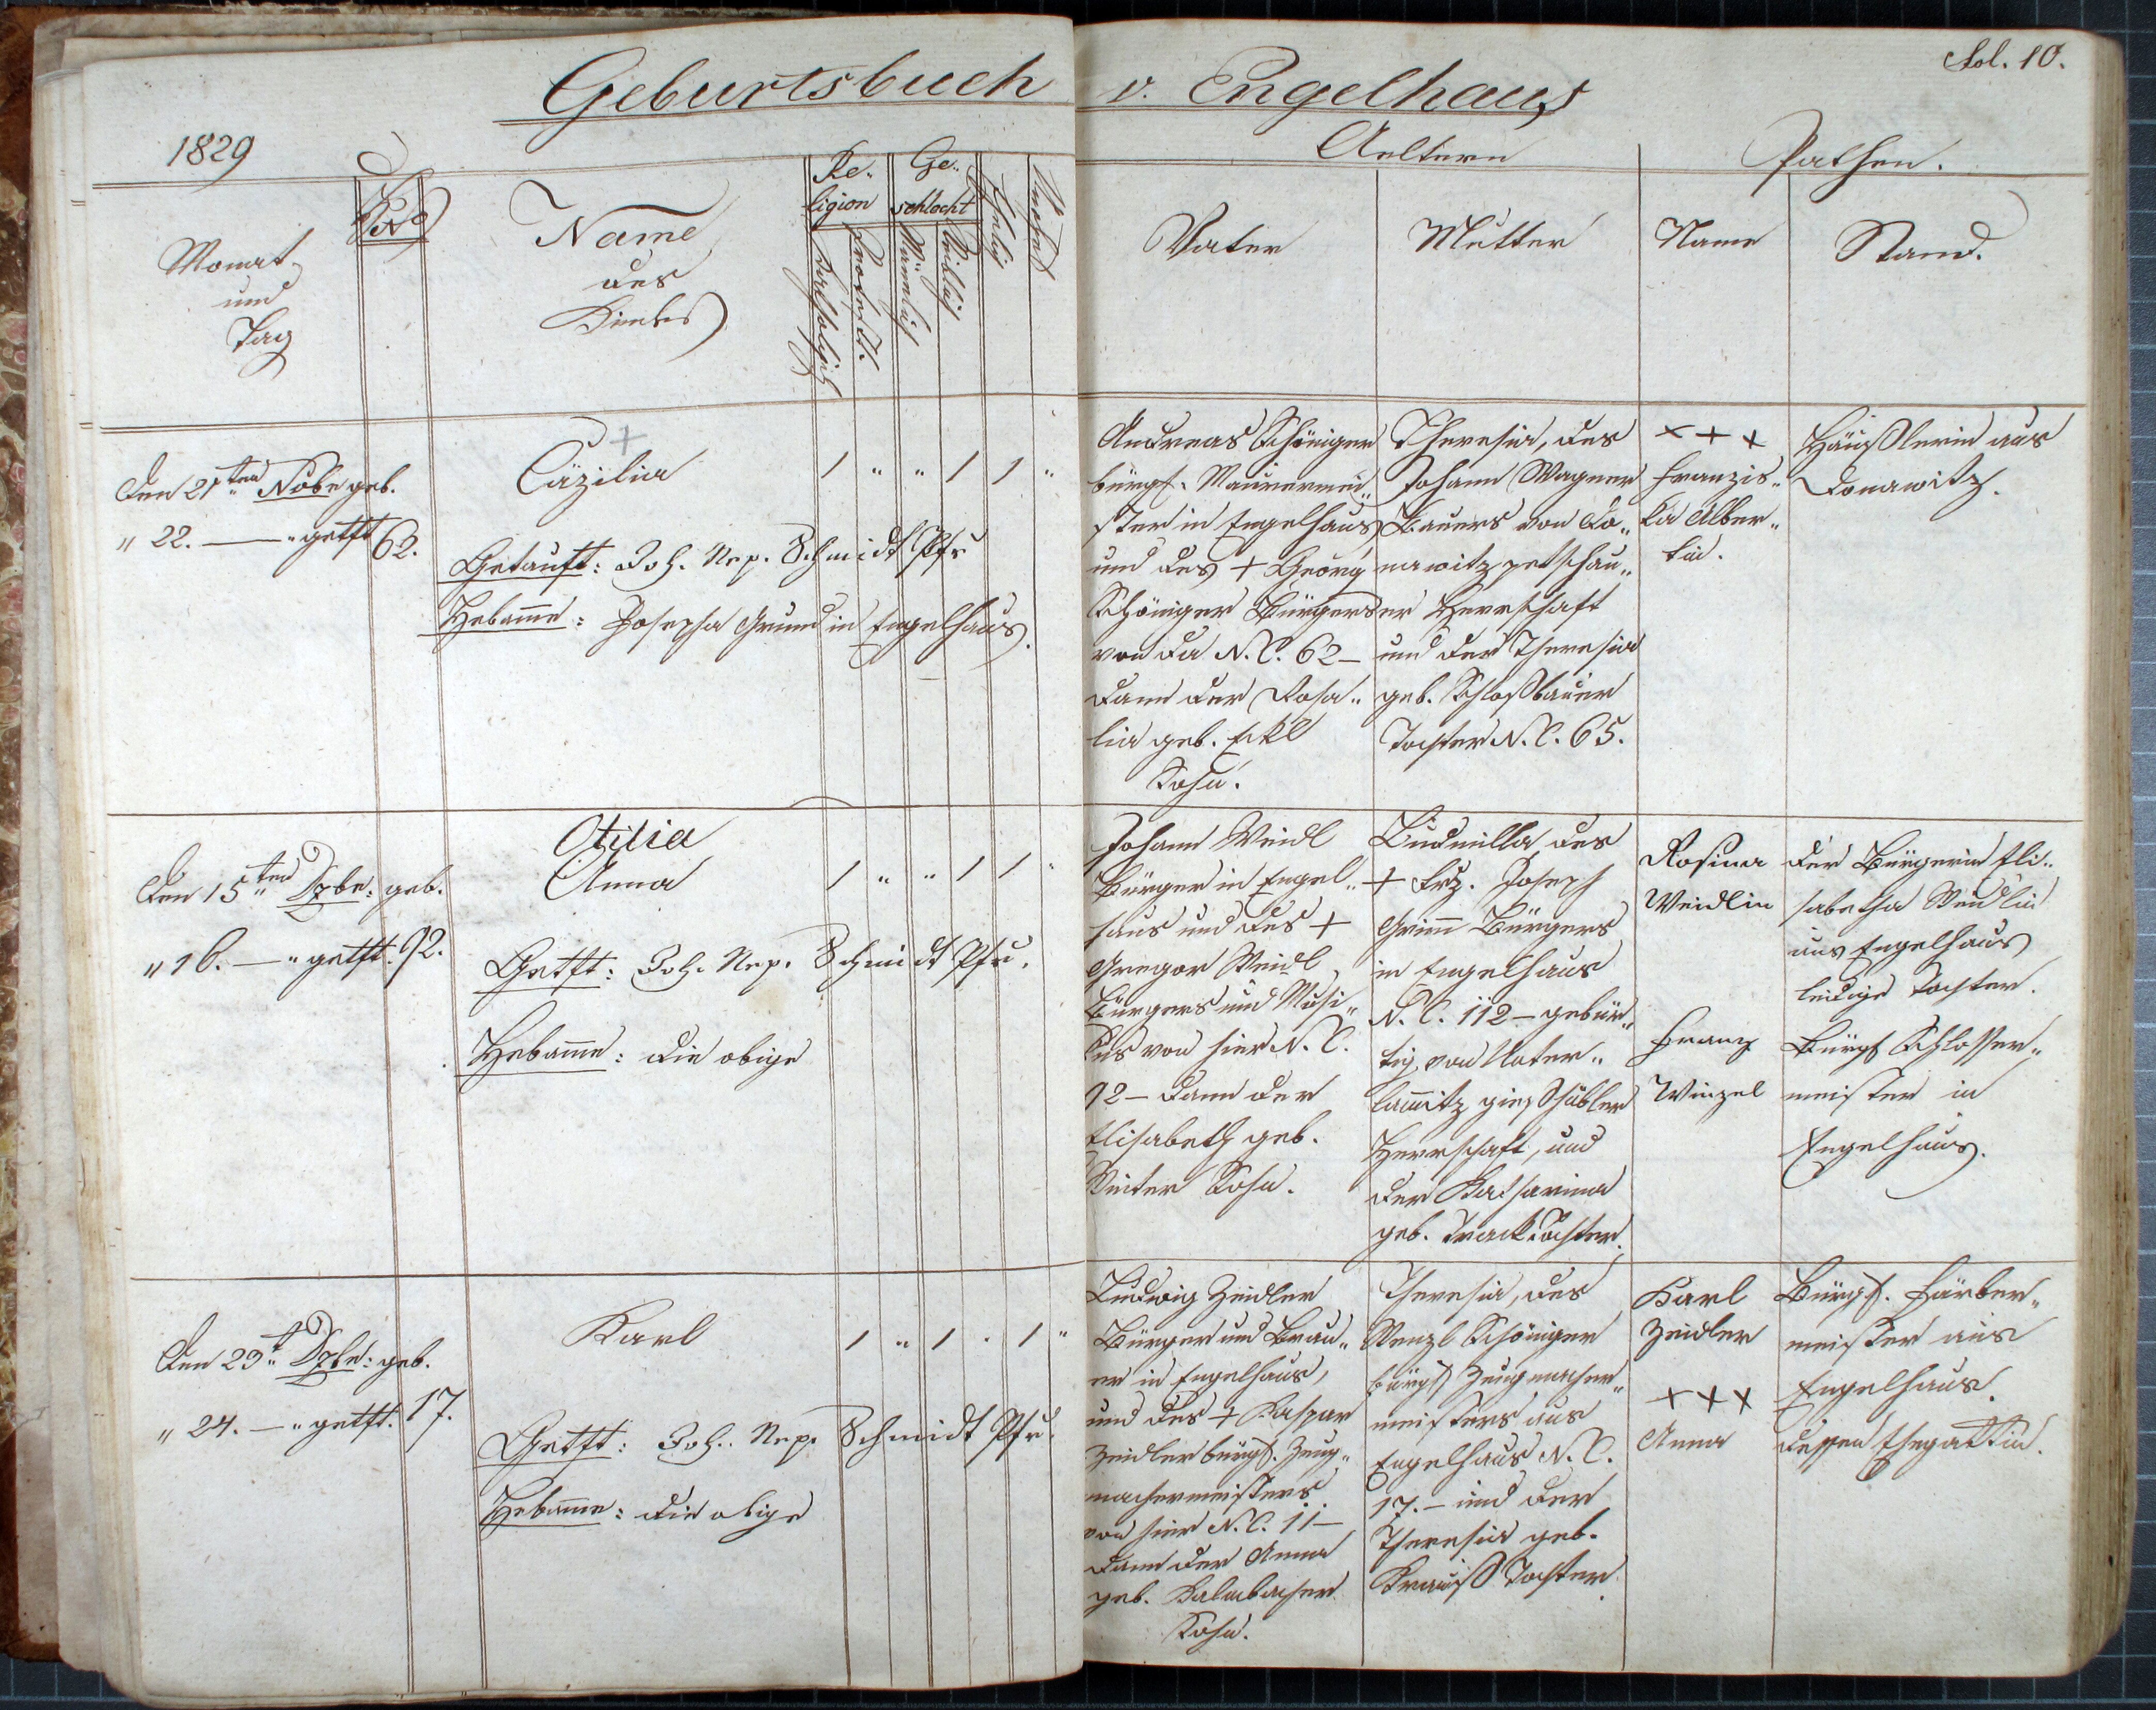 Geburtsbuch v. Engelhaus
Fol. 10.
1829
Monat
und
Tag
Nro
Name
des
Kindes
Re-
ligion
Katholisch
Protest.
Ge-
schlecht
Männlich
Weiblich
Ehelig
Unehel.
Aeltern
Vater
Mutter
Pathen.
Name
Stand.
Den 21ten Nobr geb.
" 22. — " getft
62.
Cäzilia
1 " " 1 1 "
Getauft: Joh. Nep. Schmidt Pfr
Hebamme: Josepha Grund in Engelhaus.
Andreas Schöniger
bürgl. Maurermei„
ster in Engelhaus
und des + Georg
Schöniger Bürgers
von da N.C. 62 –
dann der Rosa„
lia geb. Ekl
Sohn.
Theresia, des
Johann Wagner
Bauers von Do„
nawitz petschau„
er Herrschaft
und der Theresia
geb. Schloßbauer
Tochter N.C. 65.
+ + +
Franzis„
ka Alber„
tin.
Häußlerin aus
Donawitz.
Den 15ten Dzbr: geb.
" 16. — " getft.
92.
Otilia
Anna
1 " " 1 1 "
Getft: Joh. Nep. Schmidt Pfr.
Hebamme: die obige
Johann Weidl
Bürger in Engel„
haus und des +
Gregor Weidl
Bürgers und Musi„
kus von hier N.C.
92 – dann der
Elisabeth geb.
Winter Sohn.
Ludmilla des
+ Frz. Joseph
Grimm Bürgers
in Engelhaus
N.C. 112 – gebür„
tig von Unter„
lamitz gieß Schübler
Herrschaft, und
der Katharina
geb. Track Tochter.
Rosina
Weidlin
der Bürgerin Eli„
sabetha Weidlin
aus Engelhaus
ledige Tochter.
Franz
Winzel
Bürgl Schlosser„
meister in
Engelhaus.
Den 23t Dzbr: geb.
" 24. — " getft.
17.
Karl
1 " 1 " 1 "
Getft: Joh. Nep. Schmidt Pfr.
Hebamme: die obige
Ludwig Zeidler
Bürger und Brau„
er in Engelhaus,
und des + Kaspar
Zeidler bürgl. Zeug„
machermeisters
von hier N.C. 11 –
dann der Anna
geb. Kalmbacher
Sohn.
Theresia, des
Wenzl Schöniger
bürgl Zeugmacher„
meisters aus
Engelhaus N.C.
17. – und der
Theresia geb.
Krauß Tochter.
Karl
Zeidler
+ + +
Anna
Bürgl. Färber„
meister aus
Engelhaus.
dessen Ehegattin.